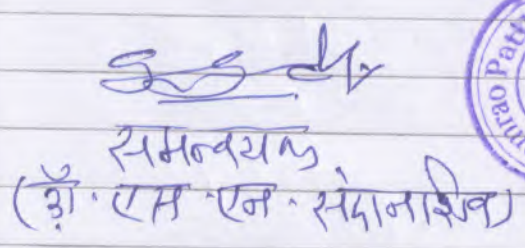 समन्वयक
(डॉ. एस. एन. संदानशिव)
mrao Patt